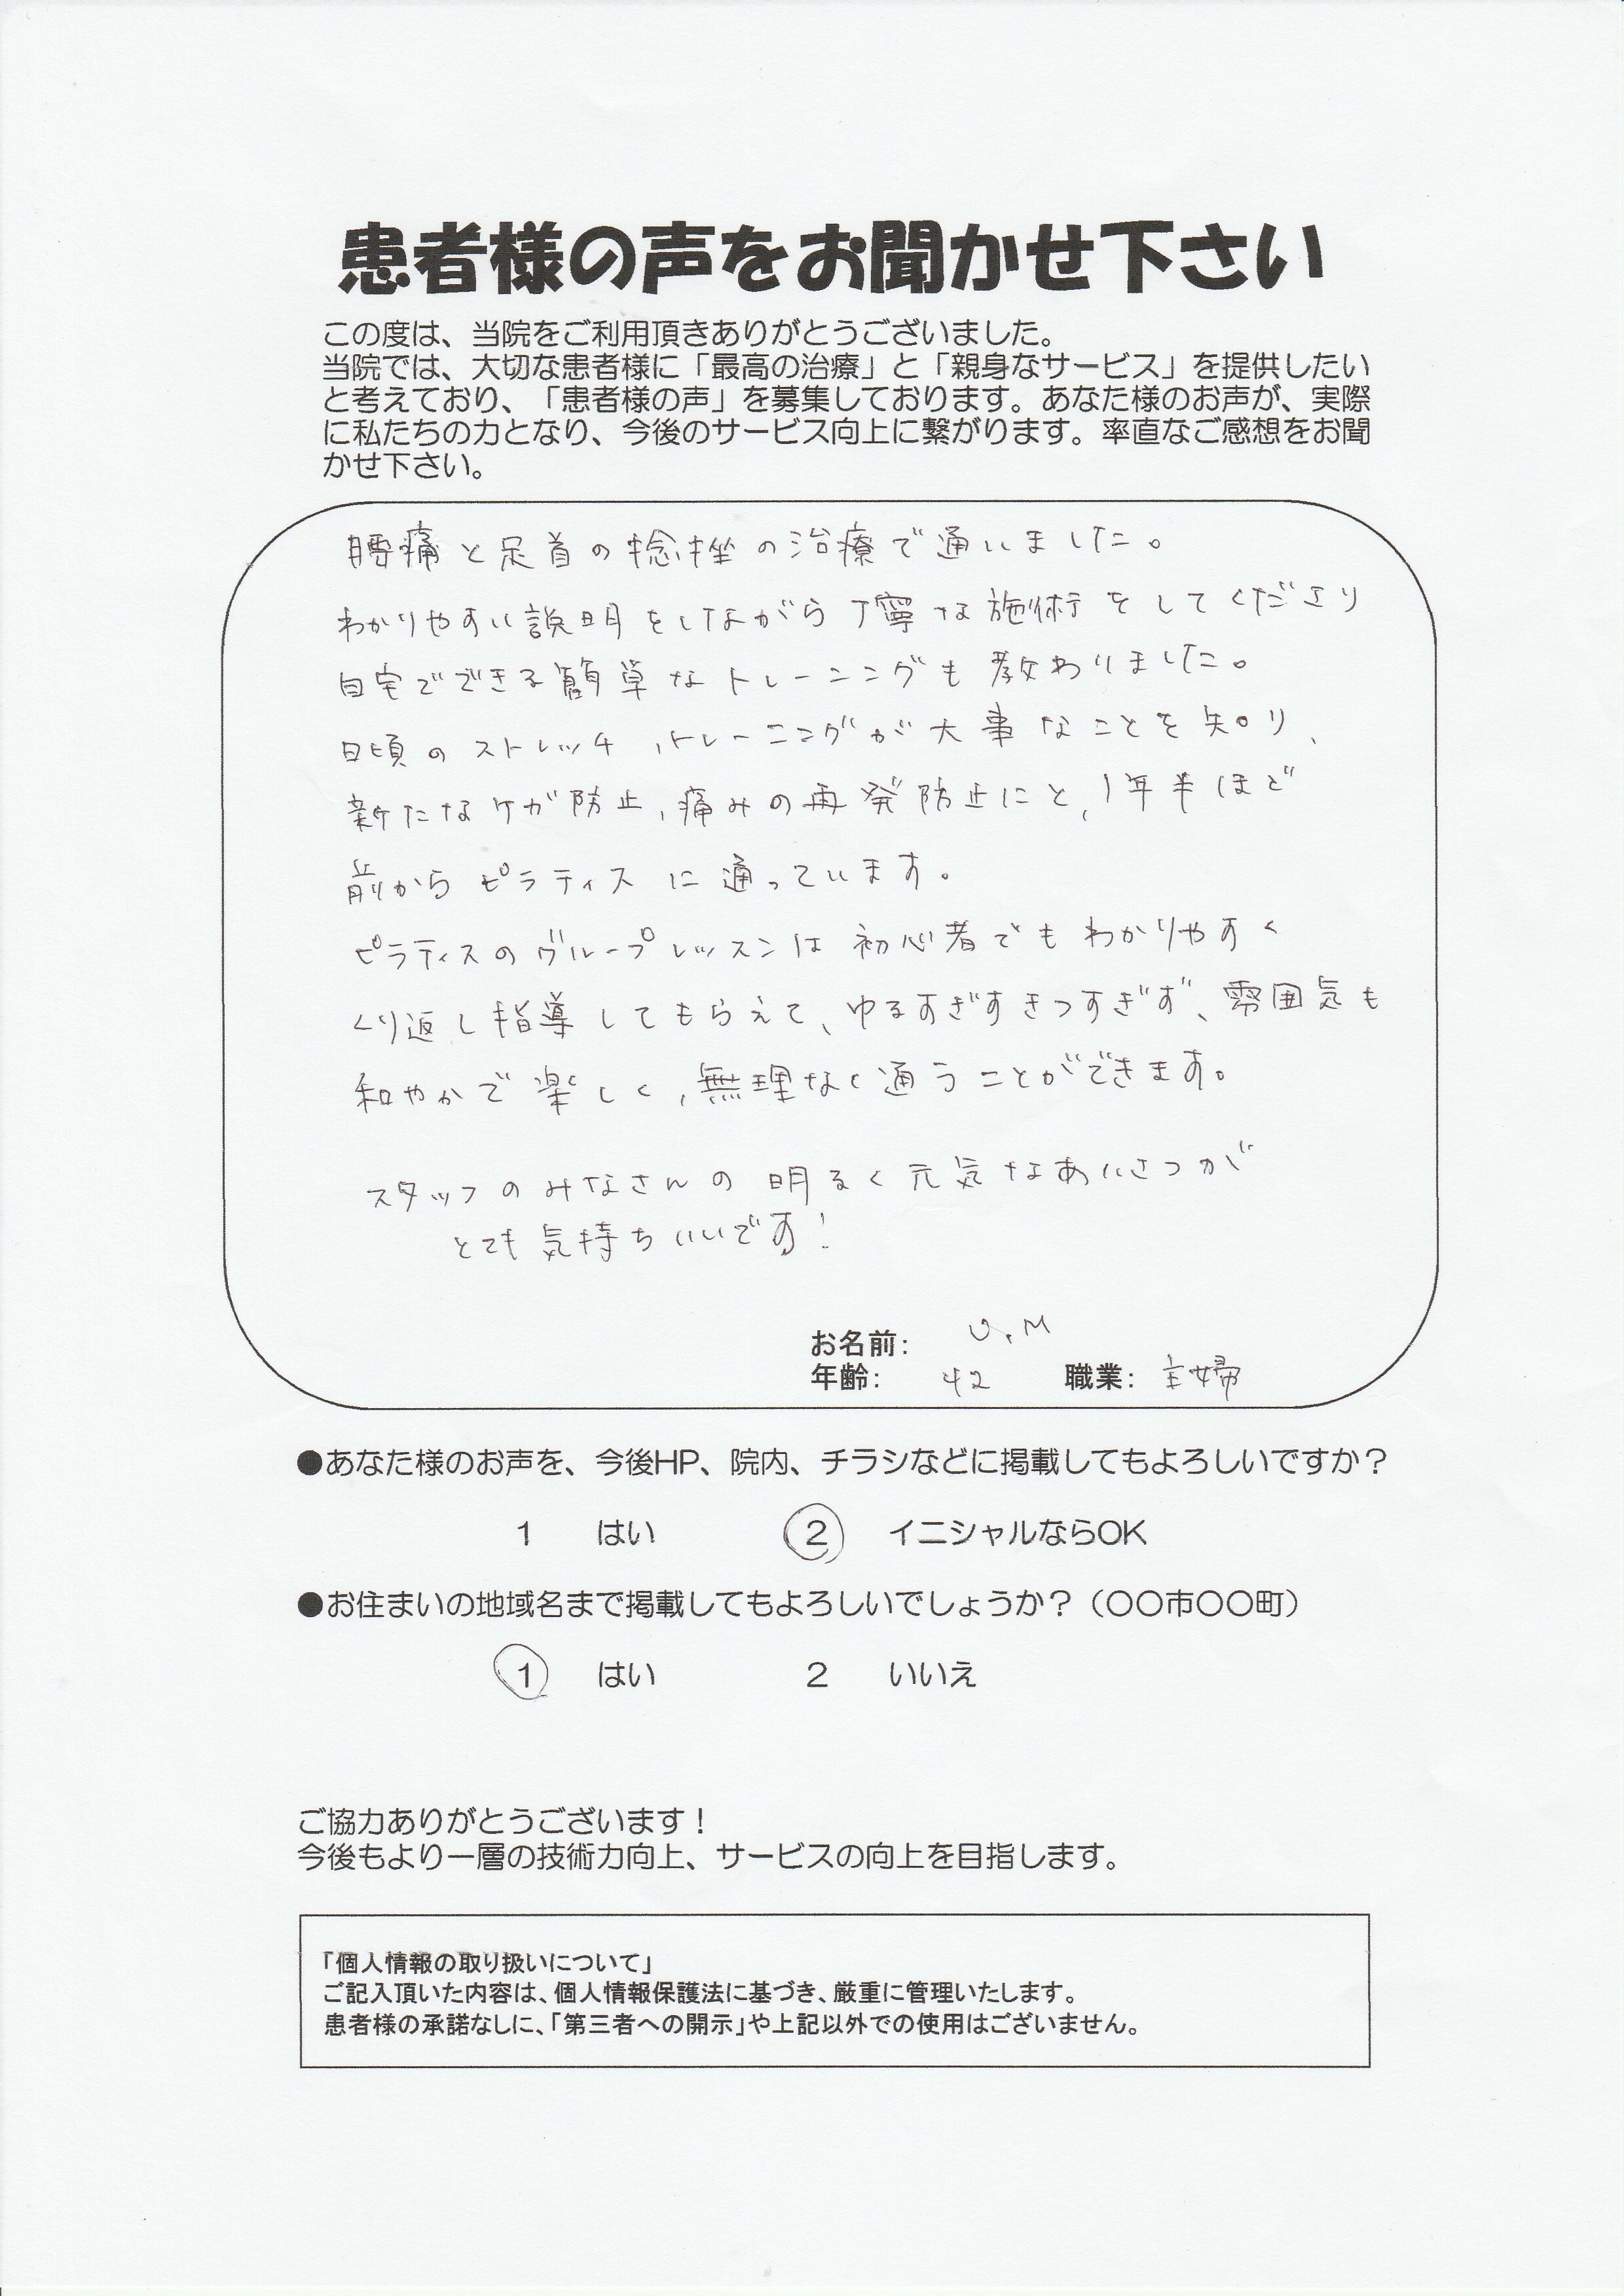 患者様の声をお聞かせ下さい
この度は、当院をご利用頂きありがとうございました。
当院では、大切な患者様に「最高の治療」と「親身なサービス」を提供したい
と考えており、「患者様の声」を募集しております。あなた様のお声が、実際
に私たちの力となり、今後のサービス向上に繋がります。率直なご感想をお聞
かせ下さい。
腰痛と足首の捻挫の治療で通いました。
わかりやすい説明をしながら丁寧な施術をしてくださり
自宅でできる簡単なトレーニングも教わりました。
日頃のストレッチ、トレーニングが大事なことを知り、
新たなケガ防止、痛みの再発防止にと、1年半ほど
前からピラティスに通っています。
ピラティスのグループレッスンは初心者でもわかりやすく
くり返し指導してもらえて、ゆるすぎずきつすぎず、雰囲気も
和やかで楽しく、無理なく通うことができます。
スタッフのみなさんの明るく元気なあいさつが
とても気持ちいいです!
お名前: U.M
年齢: 42 職業: 主婦
●あなた様のお声を、今後HP、院内、チラシなどに掲載してもよろしいですか?
1 はい 2 イニシャルならOK
●お住まいの地域名まで掲載してもよろしいでしょうか?(〇〇市〇〇町)
1 はい 2 いいえ
ご協力ありがとうございます!
今後もより一層の技術力向上、サービスの向上を目指します。
「個人情報の取り扱いについて」
ご記入頂いた内容は、個人情報保護法に基づき、厳重に管理いたします。
患者様の承諾なしに、「第三者への開示」や上記以外での使用はございません。